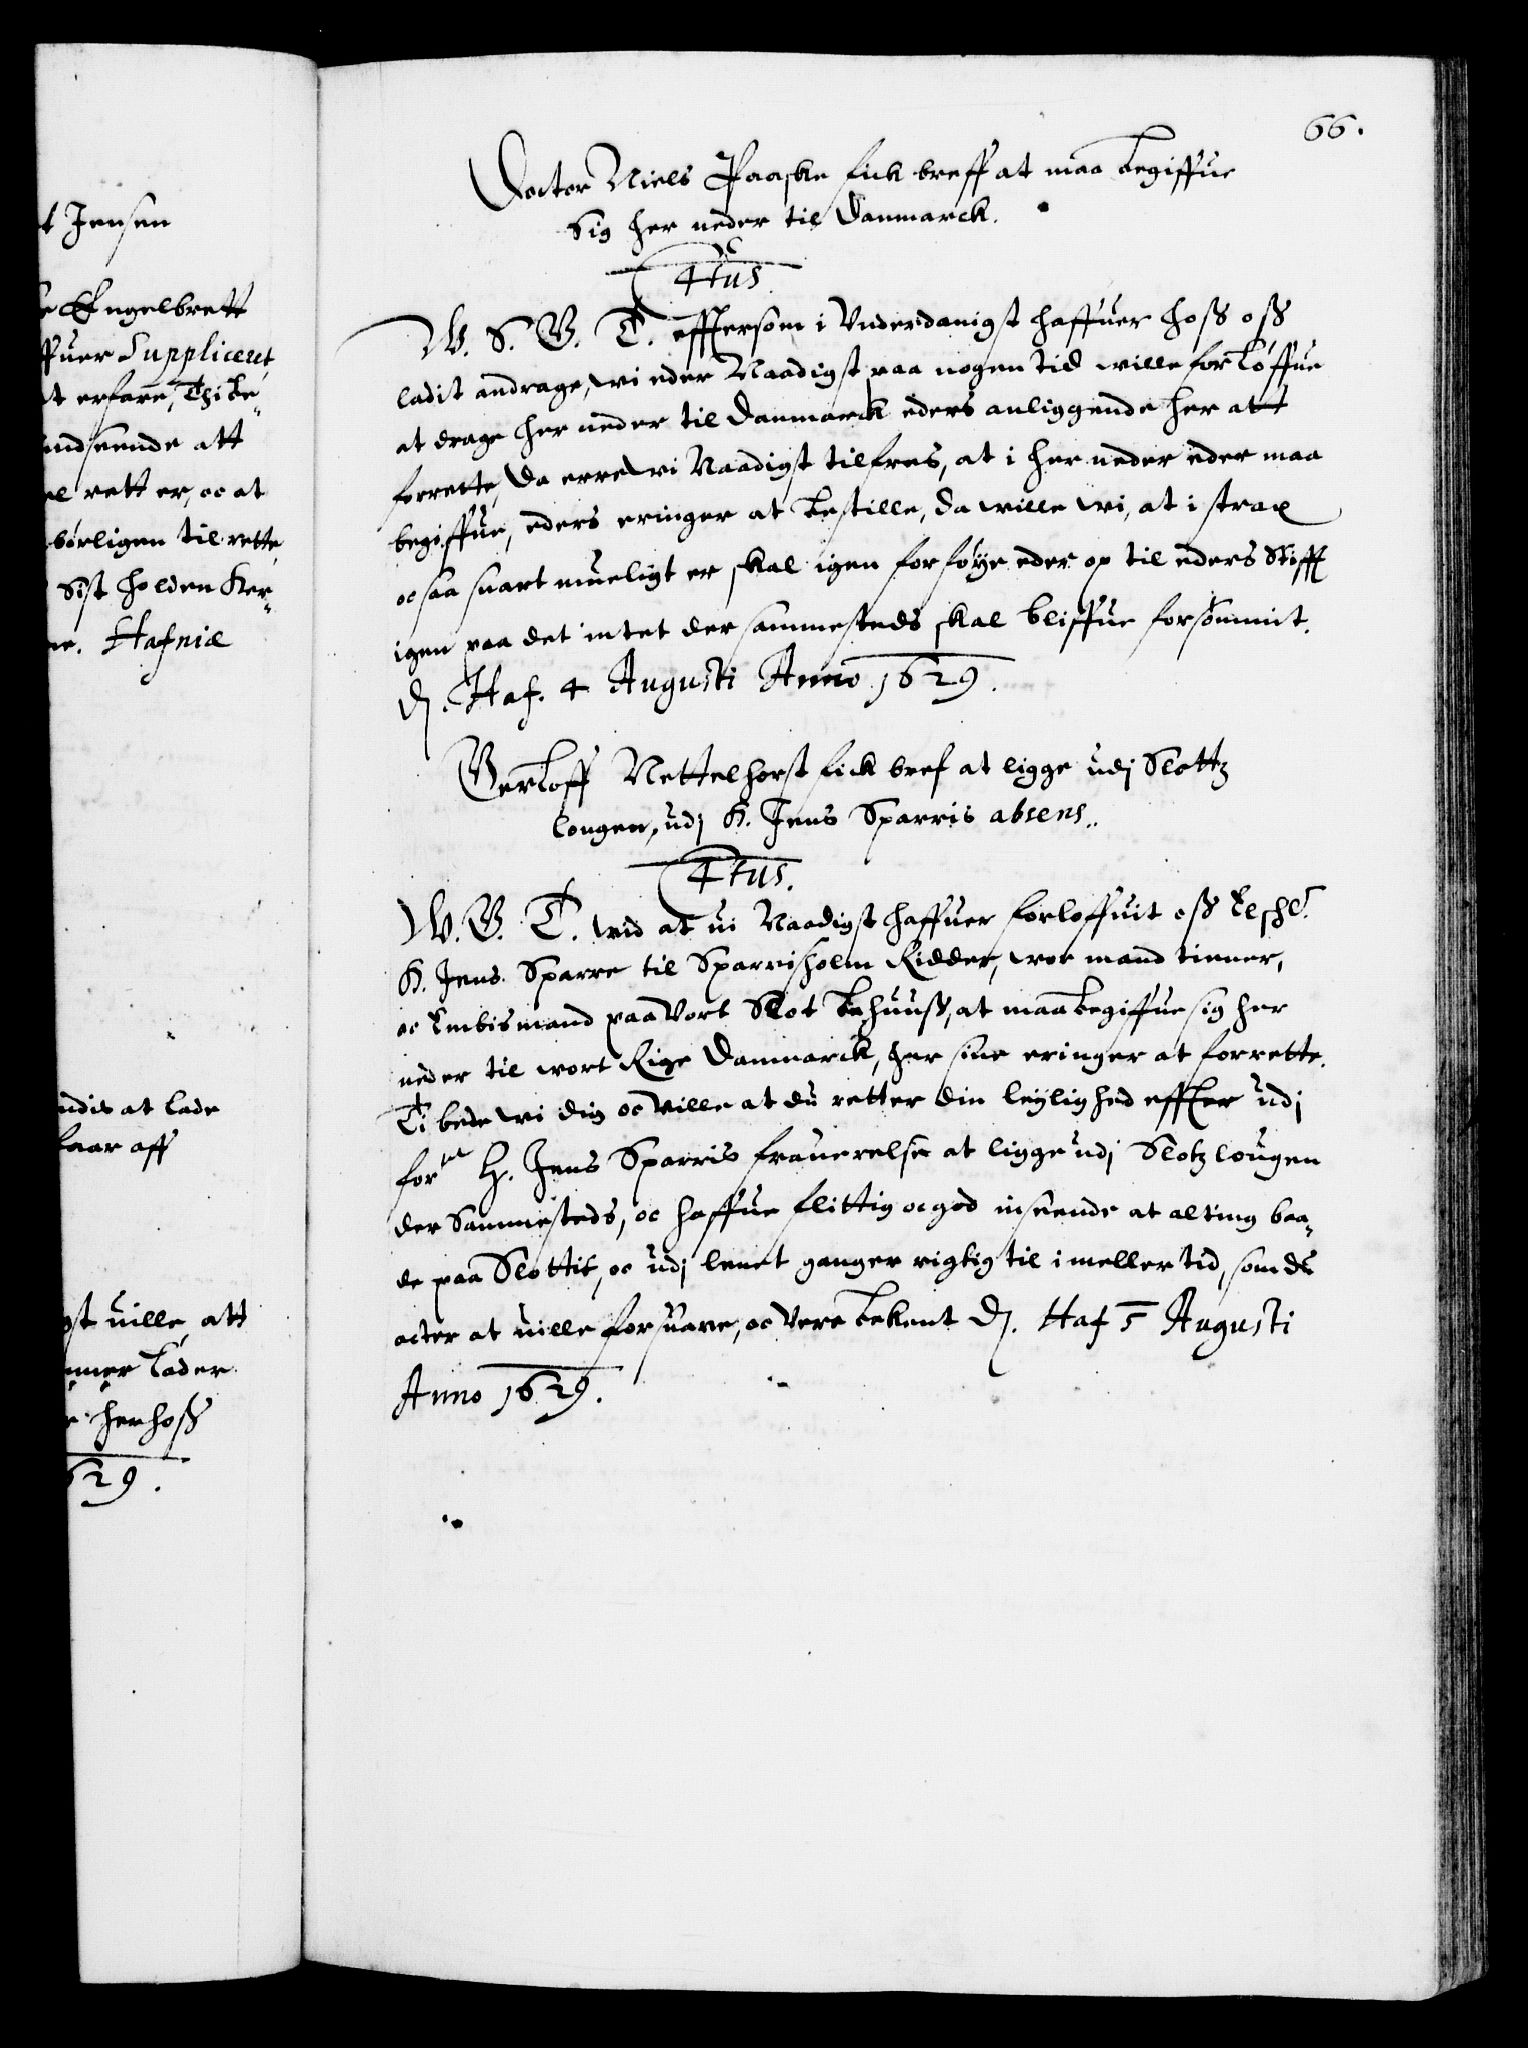 66.
Doctor Niels Paaske fick breff at maa begiffue
Sig her neder til Danmarck.
4tus
W. S. G. T. effttersom i Vnderdanigst haffuer hoss oss
ladit andrage, wi eder Naadigst paa nogen tid wille forloffue
at drage her neder til Danmarck eders anliggende her att
forrette, Da erre wi Naadigst tilfreds, at i her neder eder maa
begiffue, eders eringer at bestille, da wille wi, at i strax
oc saa snart mueligt er skal igen forføye eder op til eders Stifft
igen paa det intet der sammesteds skal bliffue forsømmit.
Dj. Haf. 4 Augusti Anno 1629.
Gerloff Nettelhorst fick bref at ligge udj Slottz
lougen, udj H. Jens Sparris absens.
4tus.
W. G. T. wid at ui Naadigst haffuer forloffuit oss Elschl.
H. Jens Sparre til Sparrisholm Ridder, wor mand tiener,
oc Embismand paa Vort Slot Bahuuss, at maa begiffue sig her
neder til wort Rige Danmarck, her sine eringer at forrette.
Ti bede wi dig oc Ville at du retter din leylighed effter udj
forne H. Jens Sparris frauerelse at ligge udj Slotz lougen
der Sammesteds, oc haffue flittig oc god inseende at alting baa¬
de paa Slottit, oc udj lenet ganger rigtig til i meller tid, som du
acter at uille forsuare, oc Vere bekent Dj. Haf 5 Augusti
Anno 1629.
t Jensen
Engelbrett
ffuer Suppliceret
t erfare, Thi be¬
indseende att
el rett er, oc at
børligen til rette
Sist holden Her¬
ne. Hafniæ
ndis at lade
faar aff
gst uille att
mmer lader
her hoss
629.